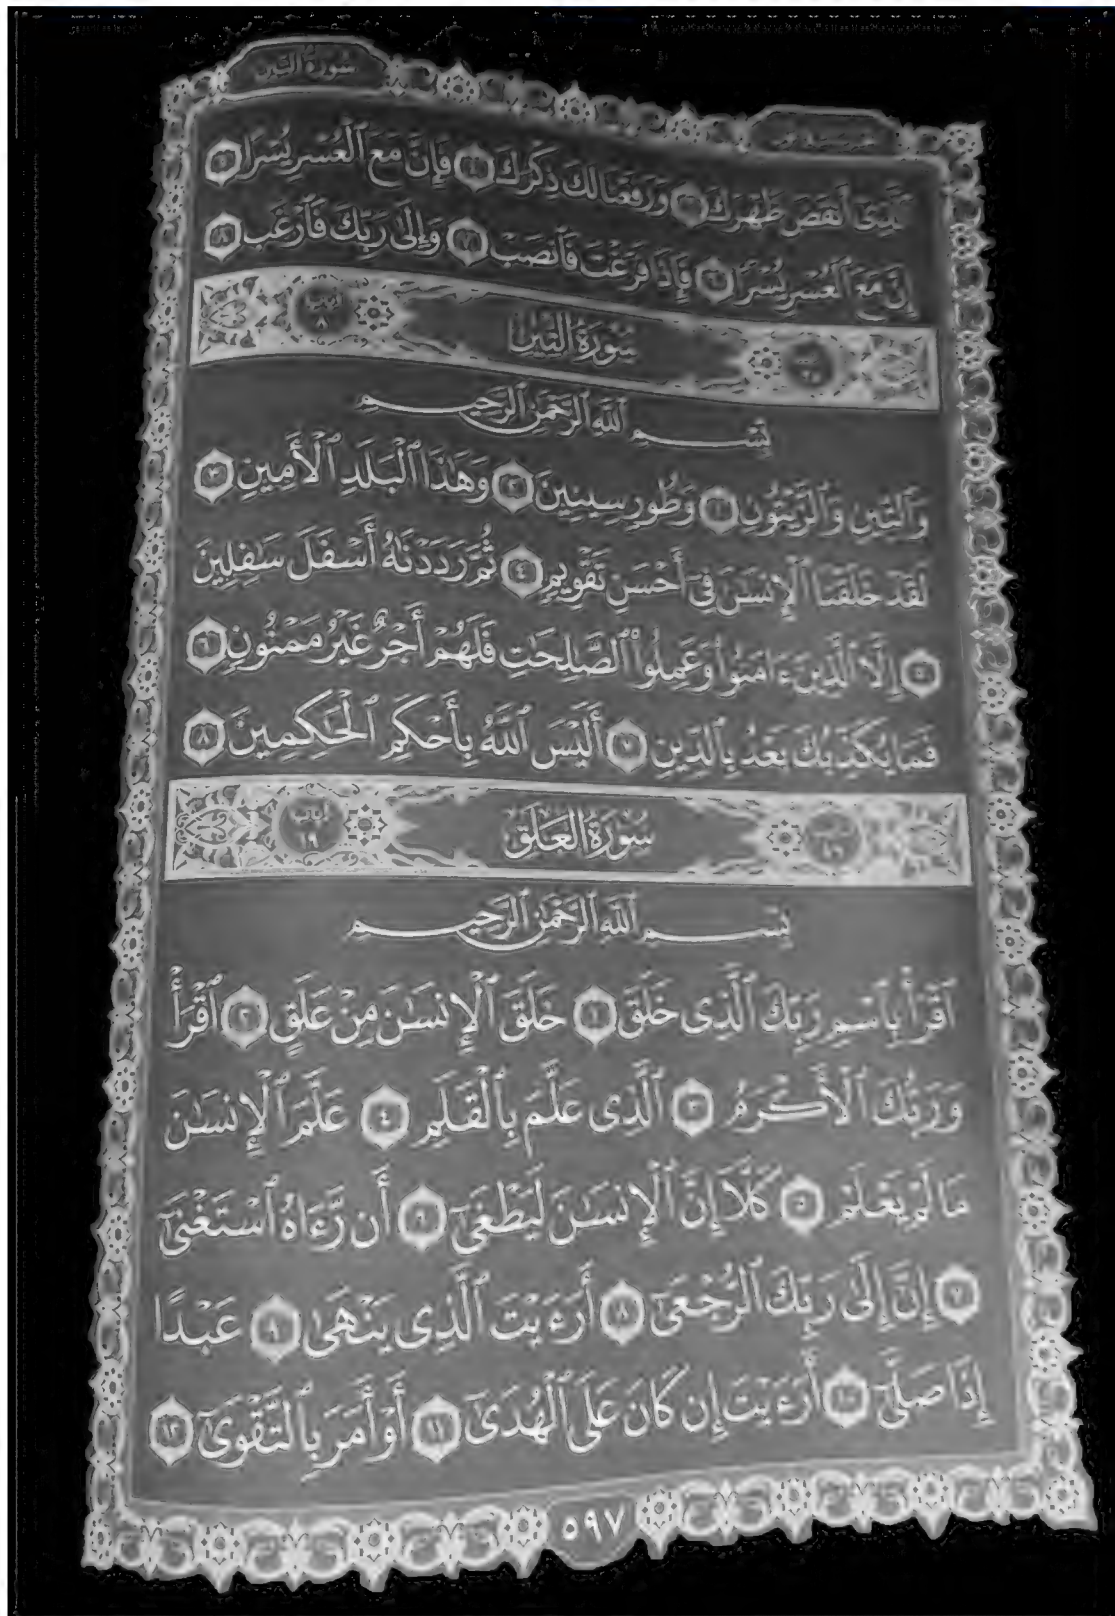 سُورَةُ التِّينِ
ٱلَّذِىٓ أَنقَضَ ظَهْرَكَ ٣ وَرَفَعْنَا لَكَ ذِكْرَكَ ٤ فَإِنَّ مَعَ ٱلْعُسْرِ يُسْرًا ٥
إِنَّ مَعَ ٱلْعُسْرِ يُسْرًا ٦ فَإِذَا فَرَغْتَ فَٱنصَبْ ٧ وَإِلَىٰ رَبِّكَ فَٱرْغَب ٨
سُورَةُ التِّينِ
آياتها ٨
بِسْمِ ٱللَّهِ ٱلرَّحْمَٰنِ ٱلرَّحِيمِ
وَٱلتِّينِ وَٱلزَّيْتُونِ ١ وَطُورِ سِينِينَ ٢ وَهَٰذَا ٱلْبَلَدِ ٱلْأَمِينِ ٣
لَقَدْ خَلَقْنَا ٱلْإِنسَٰنَ فِىٓ أَحْسَنِ تَقْوِيمٍ ٤ ثُمَّ رَدَدْنَٰهُ أَسْفَلَ سَٰفِلِينَ
٥ إِلَّا ٱلَّذِينَ ءَامَنُوا۟ وَعَمِلُوا۟ ٱلصَّٰلِحَٰتِ فَلَهُمْ أَجْرٌ غَيْرُ مَمْنُونٍ ٦
فَمَا يُكَذِّبُكَ بَعْدُ بِٱلدِّينِ ٧ أَلَيْسَ ٱللَّهُ بِأَحْكَمِ ٱلْحَٰكِمِينَ ٨
سُورَةُ العَلَقِ
آياتها ١٩
بِسْمِ ٱللَّهِ ٱلرَّحْمَٰنِ ٱلرَّحِيمِ
ٱقْرَأْ بِٱسْمِ رَبِّكَ ٱلَّذِى خَلَقَ ١ خَلَقَ ٱلْإِنسَٰنَ مِنْ عَلَقٍ ٢ ٱقْرَأْ
وَرَبُّكَ ٱلْأَكْرَمُ ٣ ٱلَّذِى عَلَّمَ بِٱلْقَلَمِ ٤ عَلَّمَ ٱلْإِنسَٰنَ
مَا لَمْ يَعْلَمْ ٥ كَلَّآ إِنَّ ٱلْإِنسَٰنَ لَيَطْغَىٰٓ ٦ أَن رَّءَاهُ ٱسْتَغْنَىٰٓ
٧ إِنَّ إِلَىٰ رَبِّكَ ٱلرُّجْعَىٰٓ ٨ أَرَءَيْتَ ٱلَّذِى يَنْهَىٰ ٩ عَبْدًا
إِذَا صَلَّىٰٓ ١٠ أَرَءَيْتَ إِن كَانَ عَلَى ٱلْهُدَىٰٓ ١١ أَوْ أَمَرَ بِٱلتَّقْوَىٰٓ ١٢
٥٩٧